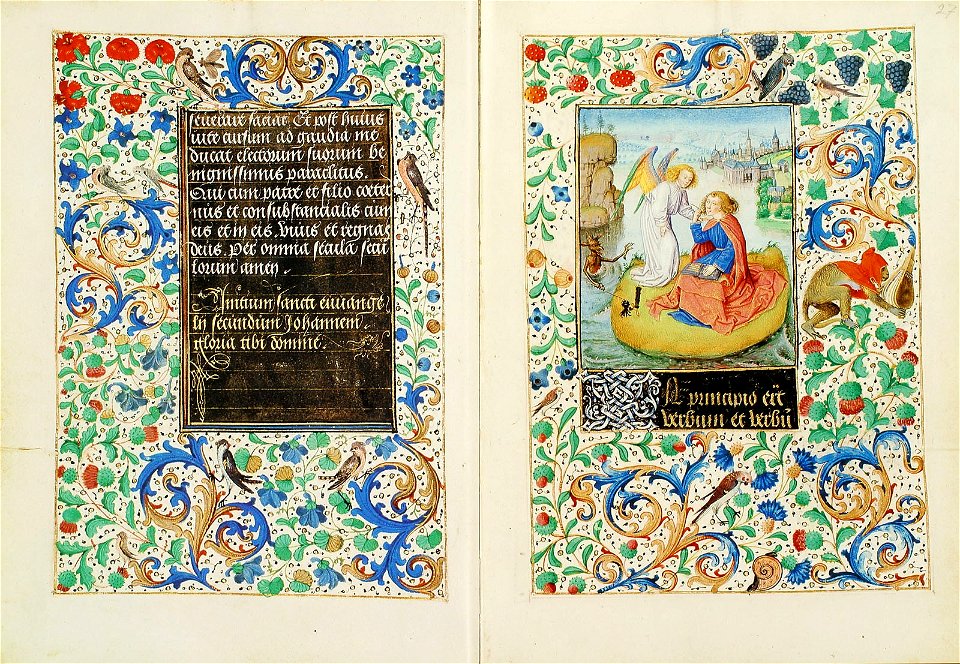 seuerare faciat Et post huius
uite cursum ad gaudia me
ducat electorum suorum be
nignissimus paraclitus.
Qui cum patre et filio coeter
nus et consubstancialis cum
eis et in eis. Viuis et regnas
deus. Per omnia secula secu
lorum amen.
Inicium sancti euuange
lij secundum Johannem.
gloria tibi domine.
27
In principio erat
verbum et verbū